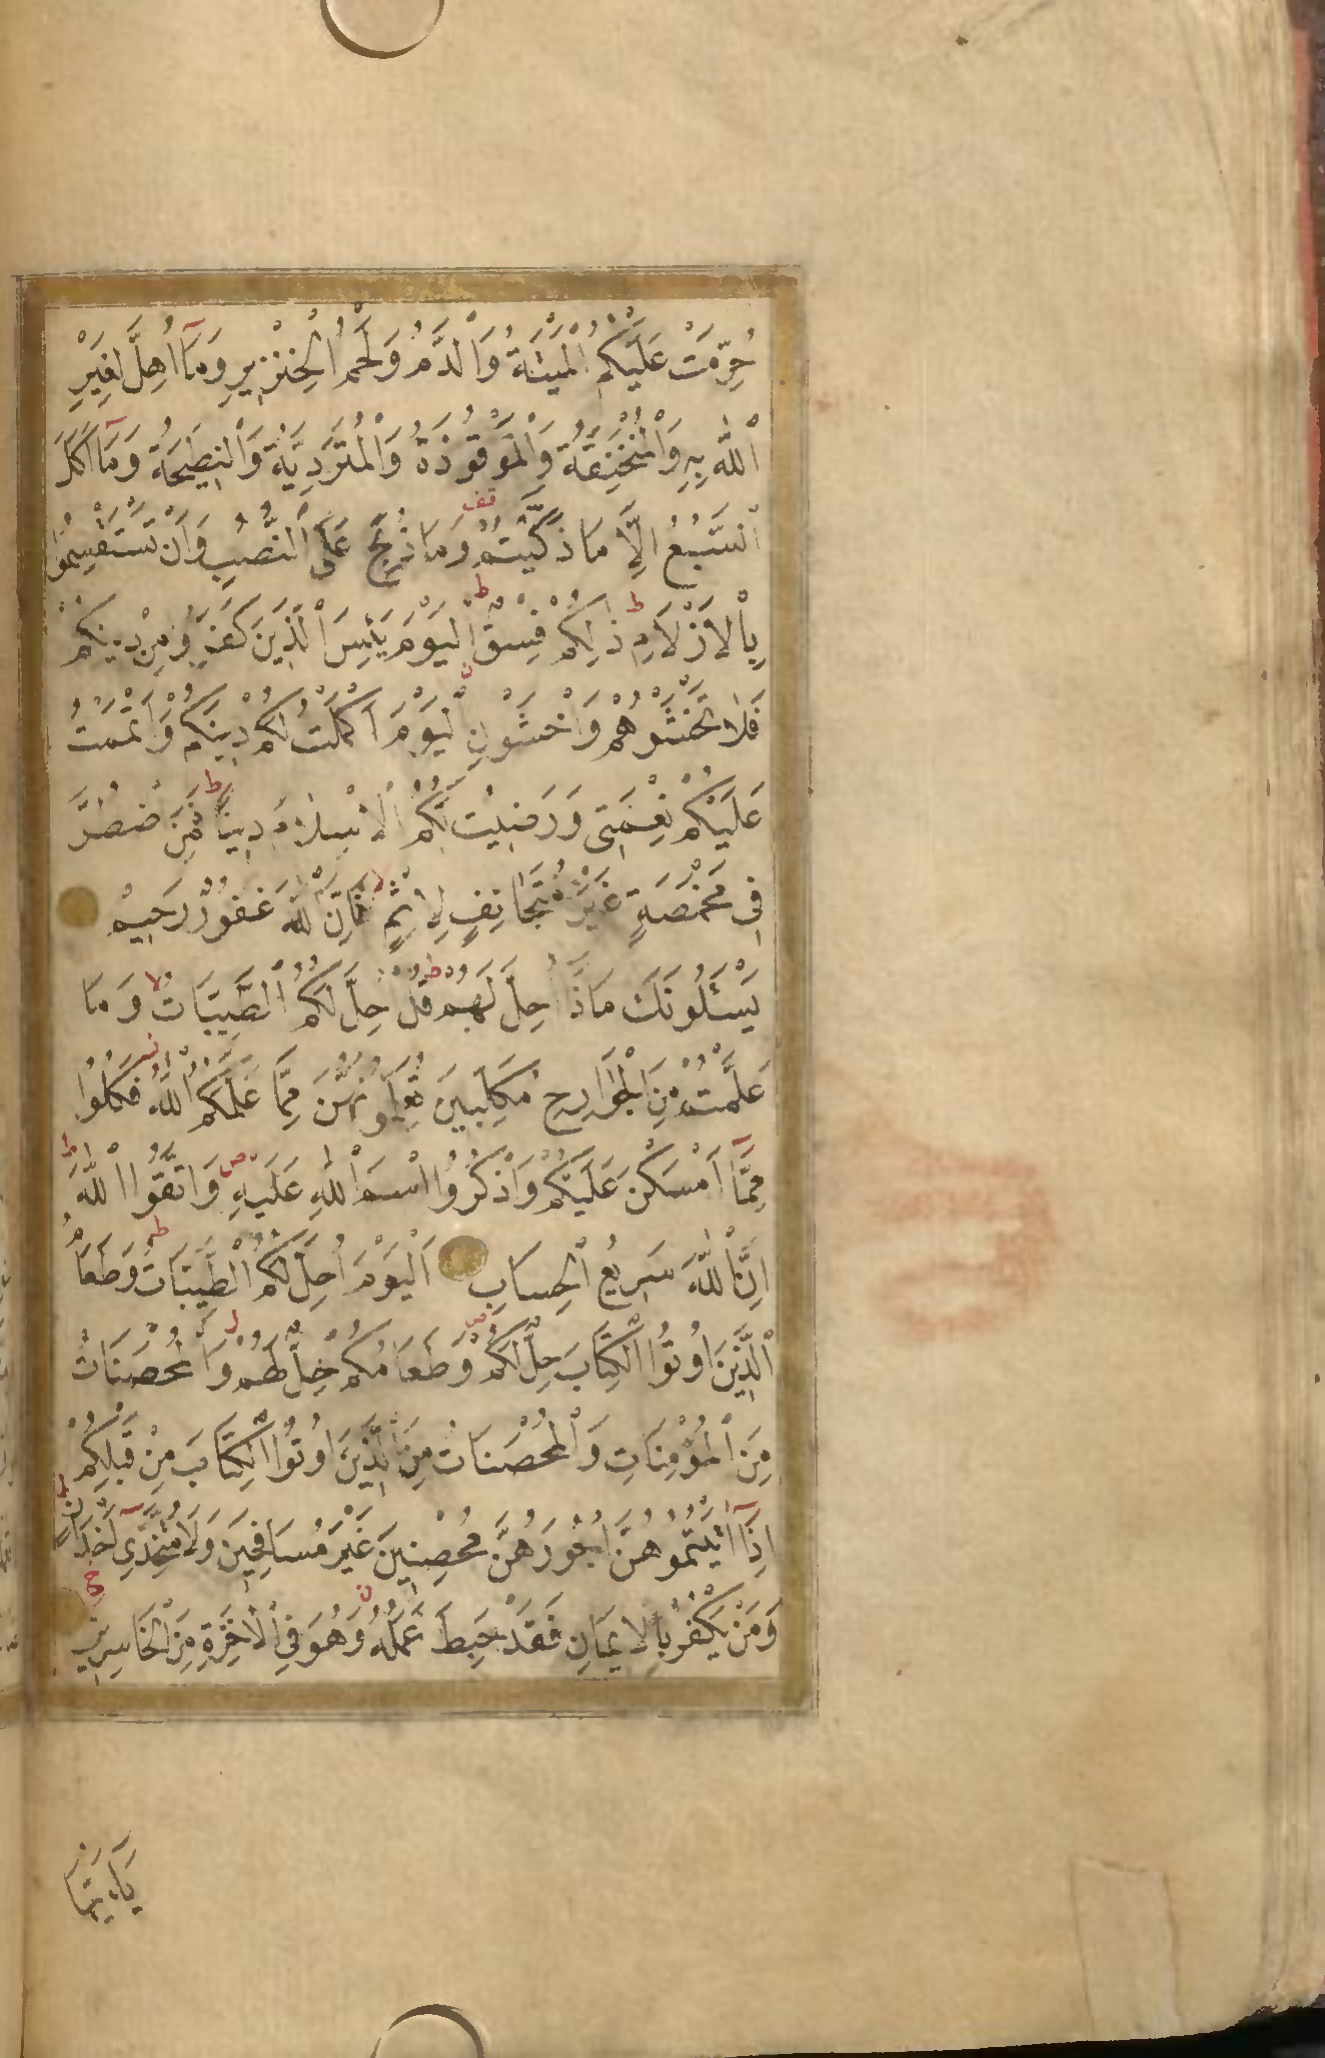 حُرِّمَتْ عَلَيْكُمُ الْمَيْتَةُ وَالدَّمُ وَلَحْمُ الْخِنْزِيرِ وَمَآ اُهِلَّ لِغَيْرِ
اللّٰهِ بِهِ وَالْمُنْخَنِقَةُ وَالْمَوْقُوذَةُ وَالْمُتَرَدِّيَةُ وَالنَّطِيحَةُ وَمَآ اَكَلَ
السَّبُعُ اِلَّا مَا ذَكَّيْتُمْ قف وَمَا ذُبِحَ عَلَى النُّصُبِ وَاَنْ تَسْتَقْسِمُوا
بِالْاَزْلَامِ ط ذٰلِكُمْ فِسْقٌ ط اَلْيَوْمَ يَئِسَ الَّذِينَ كَفَرُوا مِنْ دِينِكُمْ
فَلَا تَخْشَوْهُمْ وَاخْشَوْنِ اَلْيَوْمَ اَكْمَلْتُ لَكُمْ دِينَكُمْ وَاَتْمَمْتُ
عَلَيْكُمْ نِعْمَتِى وَرَضِيتُ لَكُمُ الْاِسْلَامَ دِينًا ط فَمَنِ اضْطُرَّ
فِى مَخْمَصَةٍ غَيْرَ مُتَجَانِفٍ لِاِثْمٍ فَاِنَّ اللّٰهَ غَفُورٌ رَحِيمٌ
يَسْئَلُونَكَ مَاذَآ اُحِلَّ لَهُمْ ط قُلْ اُحِلَّ لَكُمُ الطَّيِّبَاتُ لا وَمَا
عَلَّمْتُمْ مِنَ الْجَوَارِحِ مُكَلِّبِينَ تُعَلِّمُونَهُنَّ مِمَّا عَلَّمَكُمُ اللّٰهُ فَكُلُوا
مِمَّآ اَمْسَكْنَ عَلَيْكُمْ وَاذْكُرُوا اسْمَ اللّٰهِ عَلَيْهِ ص وَاتَّقُوا اللّٰهَ ط
اِنَّ اللّٰهَ سَرِيعُ الْحِسَابِ اَلْيَوْمَ اُحِلَّ لَكُمُ الطَّيِّبَاتُ ط وَطَعَامُ
الَّذِينَ اُوتُوا الْكِتَابَ حِلٌّ لَكُمْ ص وَطَعَامُكُمْ حِلٌّ لَهُمْ وَالْمُحْصَنَاتُ
مِنَ الْمُؤْمِنَاتِ وَالْمُحْصَنَاتُ مِنَ الَّذِينَ اُوتُوا الْكِتَابَ مِنْ قَبْلِكُمْ
اِذَآ اٰتَيْتُمُوهُنَّ اُجُورَهُنَّ مُحْصِنِينَ غَيْرَ مُسَافِحِينَ وَلَا مُتَّخِذِىٓ اَخْدَانٍ ط
وَمَنْ يَكْفُرْ بِالْاِيمَانِ فَقَدْ حَبِطَ عَمَلُهُ وَهُوَ فِى الْاٰخِرَةِ مِنَ الْخَاسِرِينَ
يَآءَيُّهَا